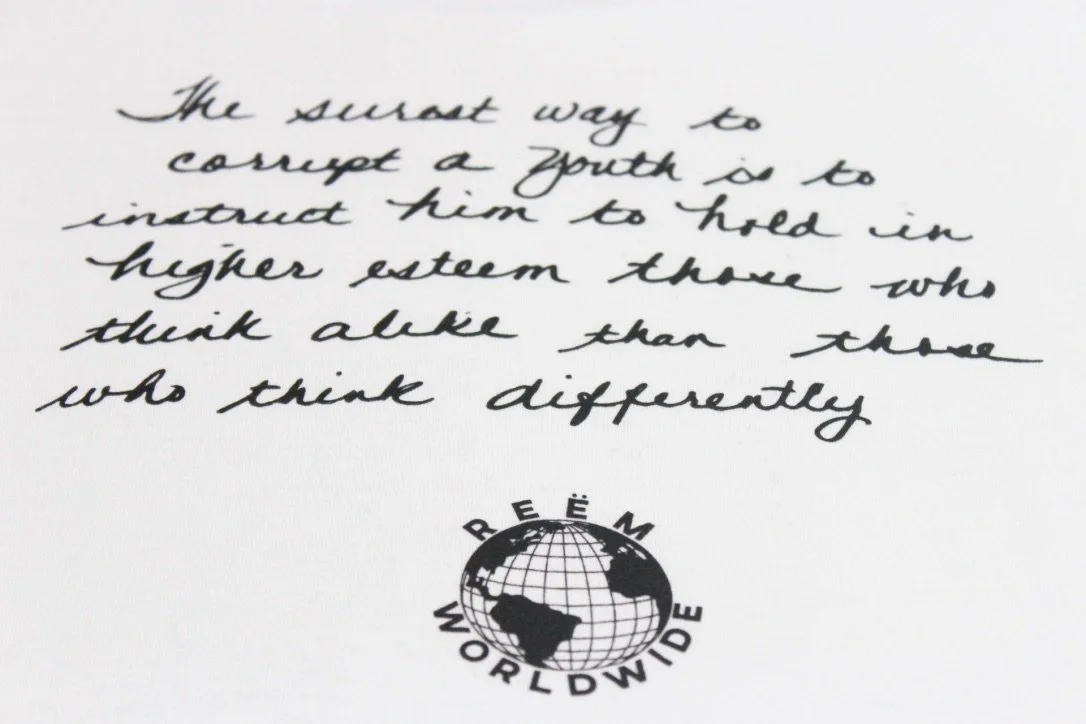 The surest way to
corrupt a Youth is to
instruct him to hold in
higher esteem those who
think alike than those
who think differently
REËM
WORLDWIDE